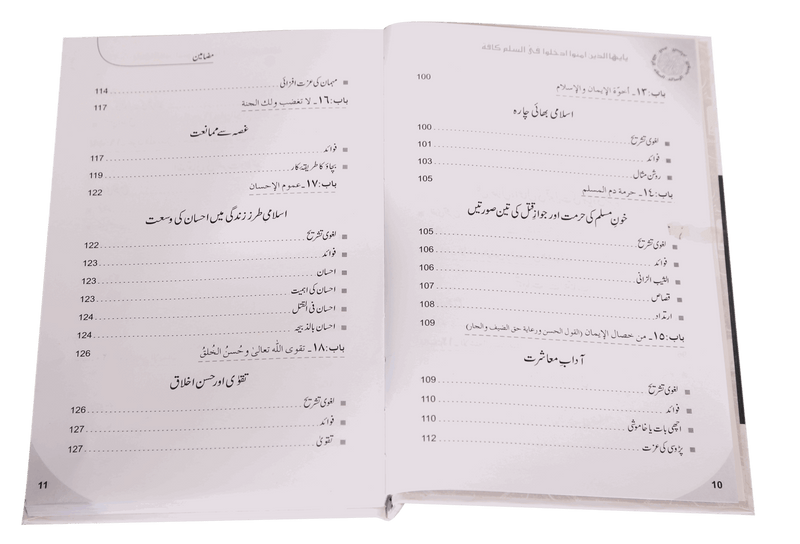 یایها الذین امنوا ادخلوا فی السلم کافة
باب:۱۳۔ أخوّة الإیمان والإسلام 100
اسلامی بھائی چارہ
لغوی تشریح 100
فوائد 101
روشن مثال 103
باب:۱۴۔ حرمة دم المسلم 105
خونِ مسلم کی حرمت اور جوازِ قتل کی تین صورتیں
لغوی تشریح 105
فوائد 106
الثیب الزانی 106
قصاص 107
ارتداد 108
باب:۱۵۔ من خصال الإیمان (القول الحسن ورعایة حق الضیف والجار) 109
آدابِ معاشرت
لغوی تشریح 109
فوائد 110
اچھی بات یا خاموشی 110
پڑوسی کی عزت 112
10
مضامین
مہمان کی عزت افزائی 114
باب:۱۶۔ لا تغضب ولك الجنة 117
غصہ سے ممانعت
فوائد 117
بچاؤ کا طریقہ کار 119
باب:۱۷۔ عموم الإحسان 122
اسلامی طرز زندگی میں احسان کی وسعت
لغوی تشریح 122
فوائد 123
احسان 123
احسان کی اہمیت 123
احسان فی القتل 124
احسان بالذبیحہ 124
باب:۱۸۔ تقوی اللّٰه تعالیٰ وحُسنُ الخُلقُ 126
تقوٰی اور حسن اخلاق
لغوی تشریح 126
فوائد 127
تقویٰ 127
11